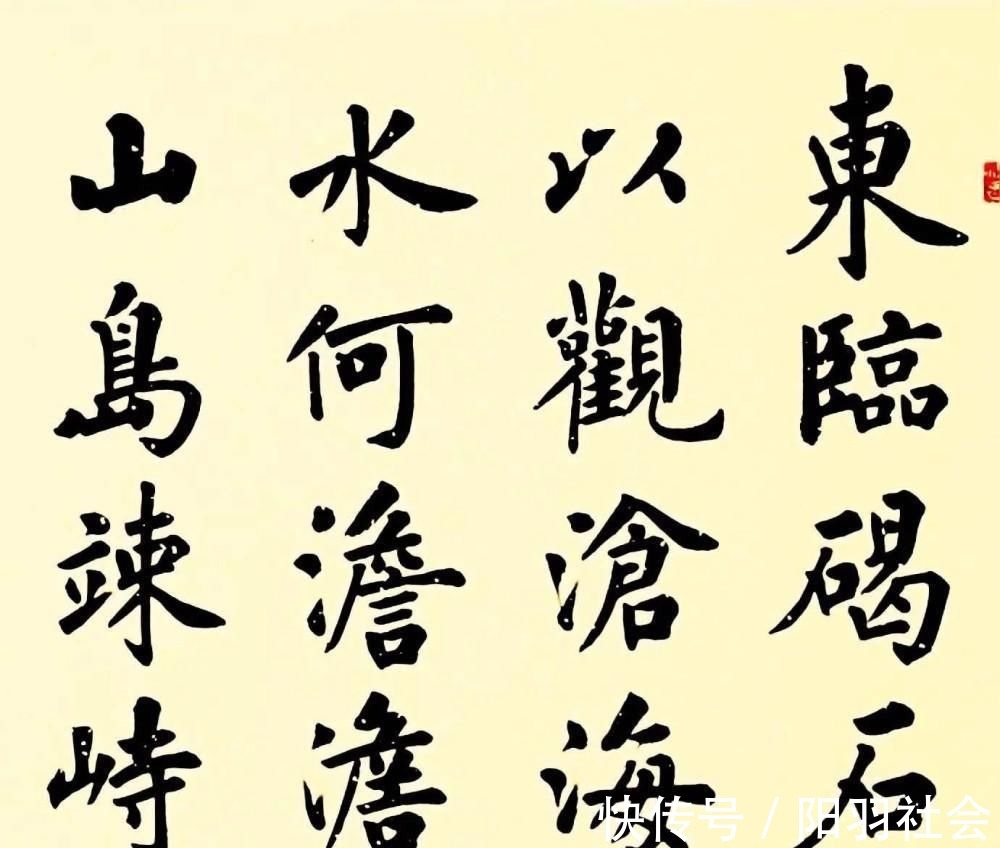 東臨碣石
以觀滄海
水何澹澹
山島竦峙
快传号／阳羽社会